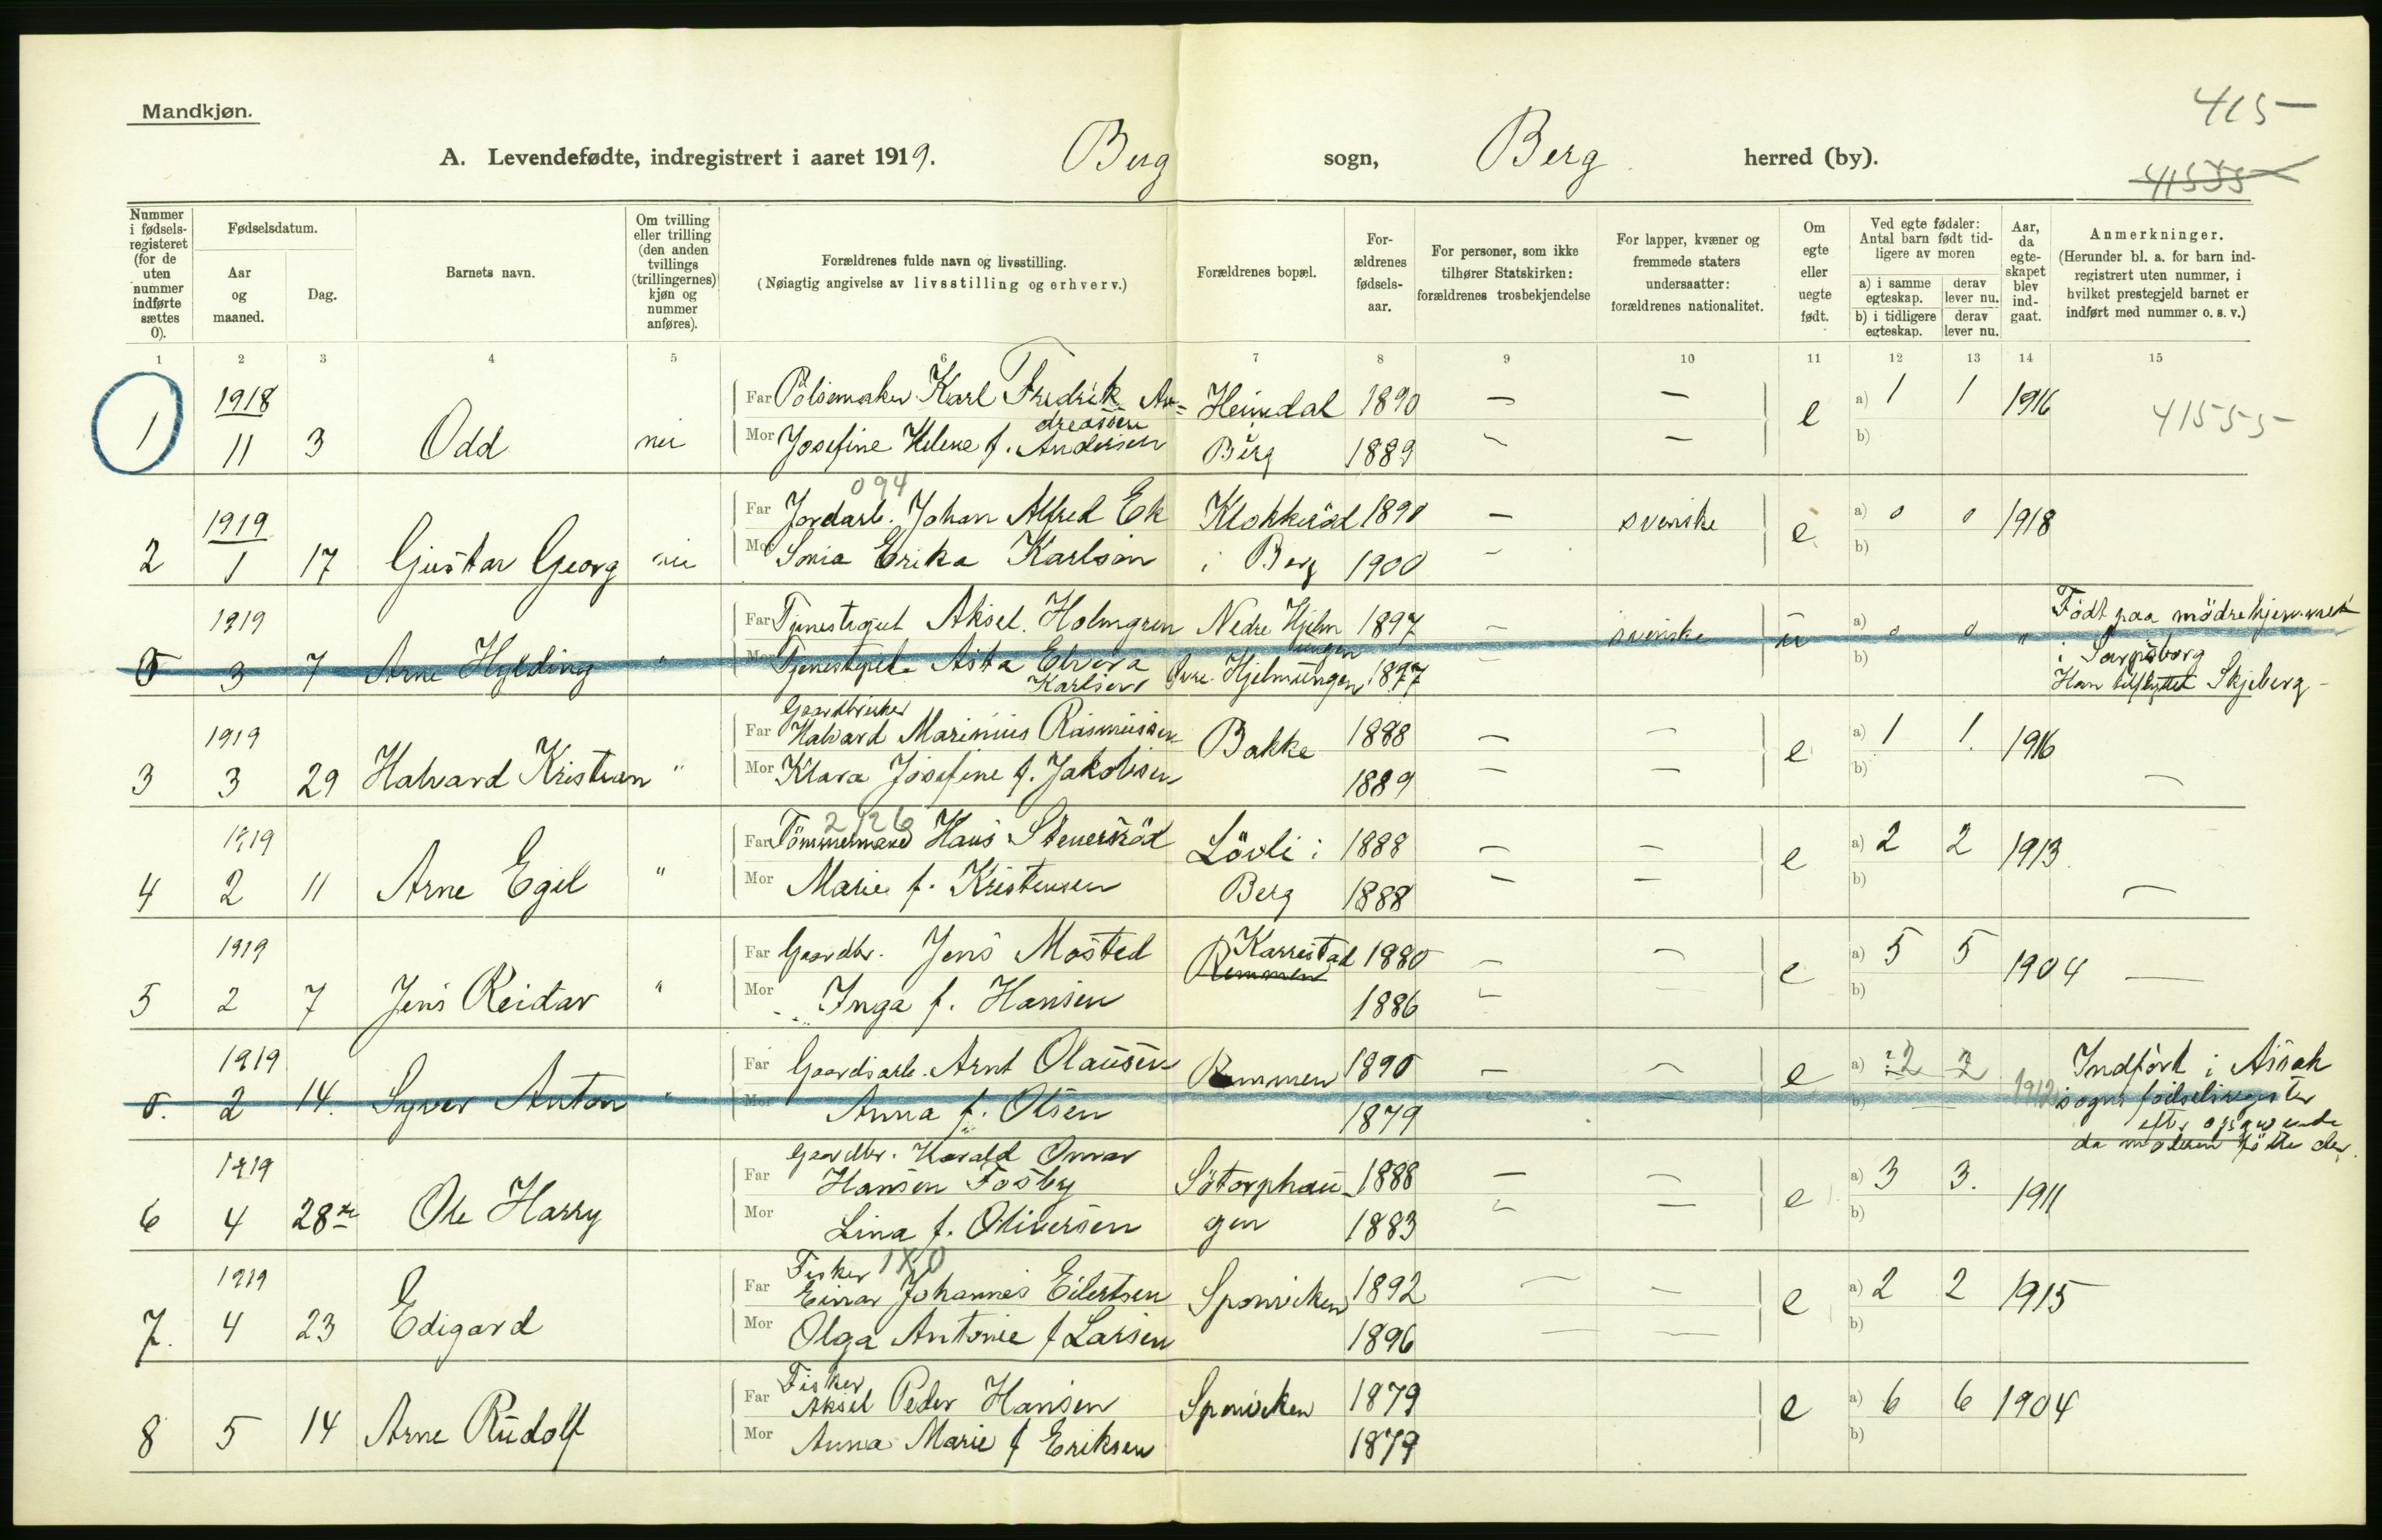 Mandkjøn.
415—
A. Levendefødte, indregistrert i aaret 1919. Berg sogn, Berg herred (by).
41555
Nummer i fødsels-registeret (for de uten nummer indførte sættes 0).
Fødselsdatum.
Aar og maaned.
Dag.
Barnets navn.
Om tvilling eller trilling (den anden tvillings (trillingernes) kjøn og nummer anføres).
Forældrenes fulde navn og livsstilling.
(Nøiagtig angivelse av livsstilling og erhverv.)
Forældrenes bopæl.
For-ældrenes fødsels-aar.
For personer, som ikke tilhører Statskirken: forældrenes trosbekjendelse
For lapper, kvæner og fremmede staters undersaatter: forældrenes nationalitet.
Om egte eller uegte født.
Ved egte fødsler: Antal barn født tid-ligere av moren
a) i samme egteskap. derav lever nu.
b) i tidligere egteskap. derav lever nu.
Aar, da egte-skapet blev ind-gaat.
Anmerkninger.
(Herunder bl. a. for barn ind-registrert uten nummer, i hvilket prestegjeld barnet er indført med nummer o. s. v.)
1 2 3 4 5 6 7 8 9 10 11 12 13 14 15
1918 Far Pölsemaker Karl Fredrik An= Heimdal 1890 — — e a) 1 1 1916 41555
dreassen
1 11 3 Odd nei Mor Josefine Helene f. Andersen Berg 1889 — — b)
094
1919 Far Jordarb. Johan Alfred Ek Klokkeröd 1890 — svenske e a) 0 0 1918
2 1 17 Gustav Georg nei Mor Sonia Erika Karlson i Berg 1900 — b)
1919 Far Tjenestegut Aksel Holmgren Nedre Hjelm 1897 — svenske u a) 0 0 " Födt paa mödrehjemmet
ungen
0 3 7 Arne Hylding " Mor Tjenestepige Asta Elvira Øvre Hjelmungen 1897 — b) i Sarpsborg
Karlsen Skjeberg —
Gaardbruker
1919 Far Halvard Marinius Rasmussen Bakke 1888 — — e a) 1 1. 1916
3 3 29 Halvard Kristian " Mor Klara Josefine f. Jakobsen 1889 — — b) —
2126
1919 Far Tömmermand Hans Stenersröd Lövli i 1888 — — e a) 2 2 1913
4 2 11 Arne Egil " Mor Marie f. Kristensen Berg 1888 — — b) —
1919 Far Gaardbr. Jens Mosted Karrestad 1880 — — e a) 5 5 1904 —
Remmen
5 2 7 Jens Reidar " Mor Inga f. Hansen 1886 — — b)
1919 Far Gaardsarb. Arnt Olausen Remmen 1890 — — e a) 2 2 1912 Indfört i Assak
0. 2 14. Syver Anton " Mor Anna f. Olsen 1879 b) — sogns födselsregister
efter
da moderen der.
Gaardbr. Harald Omar
1919 Far Hansen Fosby Sötorphau- 1888 — — e a) 3 3. 1911
6 4 28de Ole Harry Mor Lina f. Oliversen gen 1883 — — b)
Fisker 1X0
1919 Far Einar Johannes Eilertsen Sponviken 1892 — — e a) 2 2 1915
7. 4 23 Edigard Mor Olga Antonie f Larsen 1896 — — b)
Fisker
Far Aksel Peder Hansen Sponviken 1879 e a) 6 6 1904
8 5 14 Arne Rudolf Mor Anna Marie f Eriksen 1879 b)